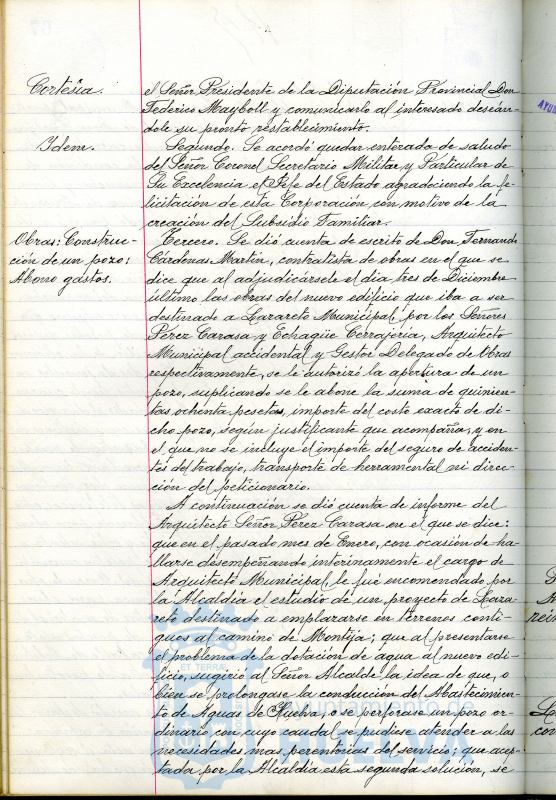 Cortesía.
el Señor Presidente de la Diputación Provincial Don
Federico Mayboll y comunicarlo al interesado deseán-
dole su pronto restablecimiento.
Idem.
Segundo. Se acordó quedar enterada de saludo
del Señor Coronel Secretario Militar y Particular de
Su Excelencia el Jefe del Estado agradeciendo la fe-
licitación de esta Corporación con motivo de la
creación del Subsidio Familiar.
Obras: Construc-
ción de un pozo:
Abono gastos.
Tercero. Se dió cuenta de escrito de Don Fernando
Cárdenas Martín, contratista de obras en el que se
dice que al adjudicársele el día tres de Diciembre
último las obras del nuevo edificio que iba a ser
destinado a Lazareto Municipal por los Señores
Pérez Carasa y Echagüe Cerrajería, Arquitecto
Municipal accidental y Gestor Delegado de Obras
respectivamente, se le autorizó la apertura de un
pozo, suplicando se le abone la suma de quinien-
tas ochenta pesetas, importe del costo exacto de di-
cho pozo, según justificante que acompaña, y en
el que no se incluye el importe del seguro de acciden-
tes del trabajo, transporte de herramental ni direc-
ción del peticionario.
A continuación se dió cuenta de informe del
Arquitecto Señor Pérez Carasa en el que se dice:
que en el pasado mes de Enero, con ocasión de ha-
llarse desempeñando interinamente el cargo de
Arquitecto Municipal, le fué encomendado por
la Alcaldía el estudio de un proyecto de Laza-
reto destinado a emplazarse en terrenos conti-
guos al camino de Montija; que al presentarse
el problema de la dotación de agua al nuevo edi-
ficio, sugirió al Señor Alcalde la idea de que, o
bien se prolongase la conducción del Abastecimien-
to de Aguas de Huelva, o se perforase un pozo or-
dinario con cuyo caudal se pudiese atender a las
necesidades mas perentorias del servicio; que acep-
tada por la Alcaldía esta segunda solución, se
ET TERRA
Ayuntamiento de